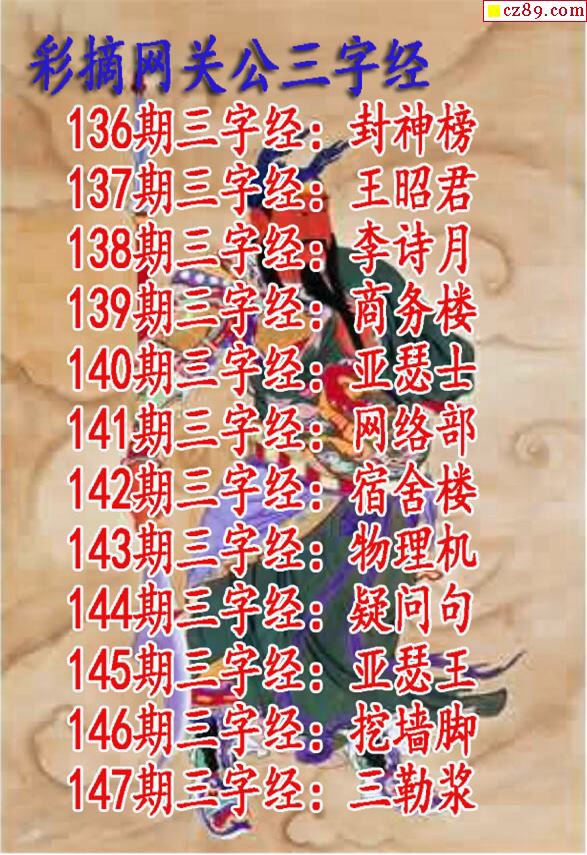 cz89.com
彩摘网关公三字经
136期三字经：封神榜
137期三字经：王昭君
138期三字经：李诗月
139期三字经：商务楼
140期三字经：亚瑟士
141期三字经：网络部
142期三字经：宿舍楼
143期三字经：物理机
144期三字经：疑问句
145期三字经：亚瑟王
146期三字经：挖墙脚
147期三字经：三勒浆